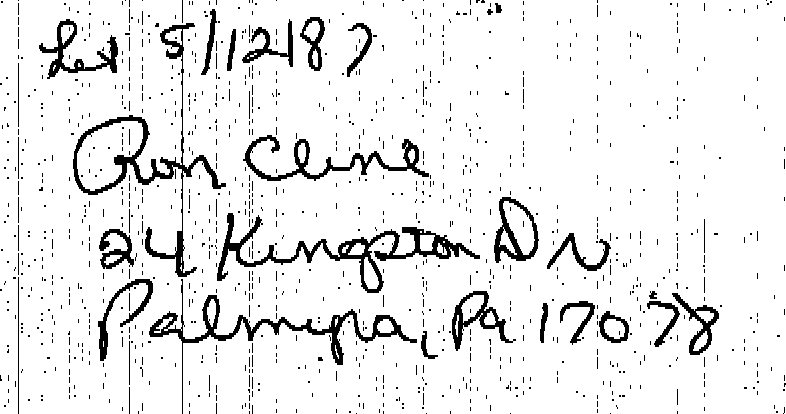 Let 5/12/87
Ron Cline
24 Kingston Dr
Palmyra, Pa 17078